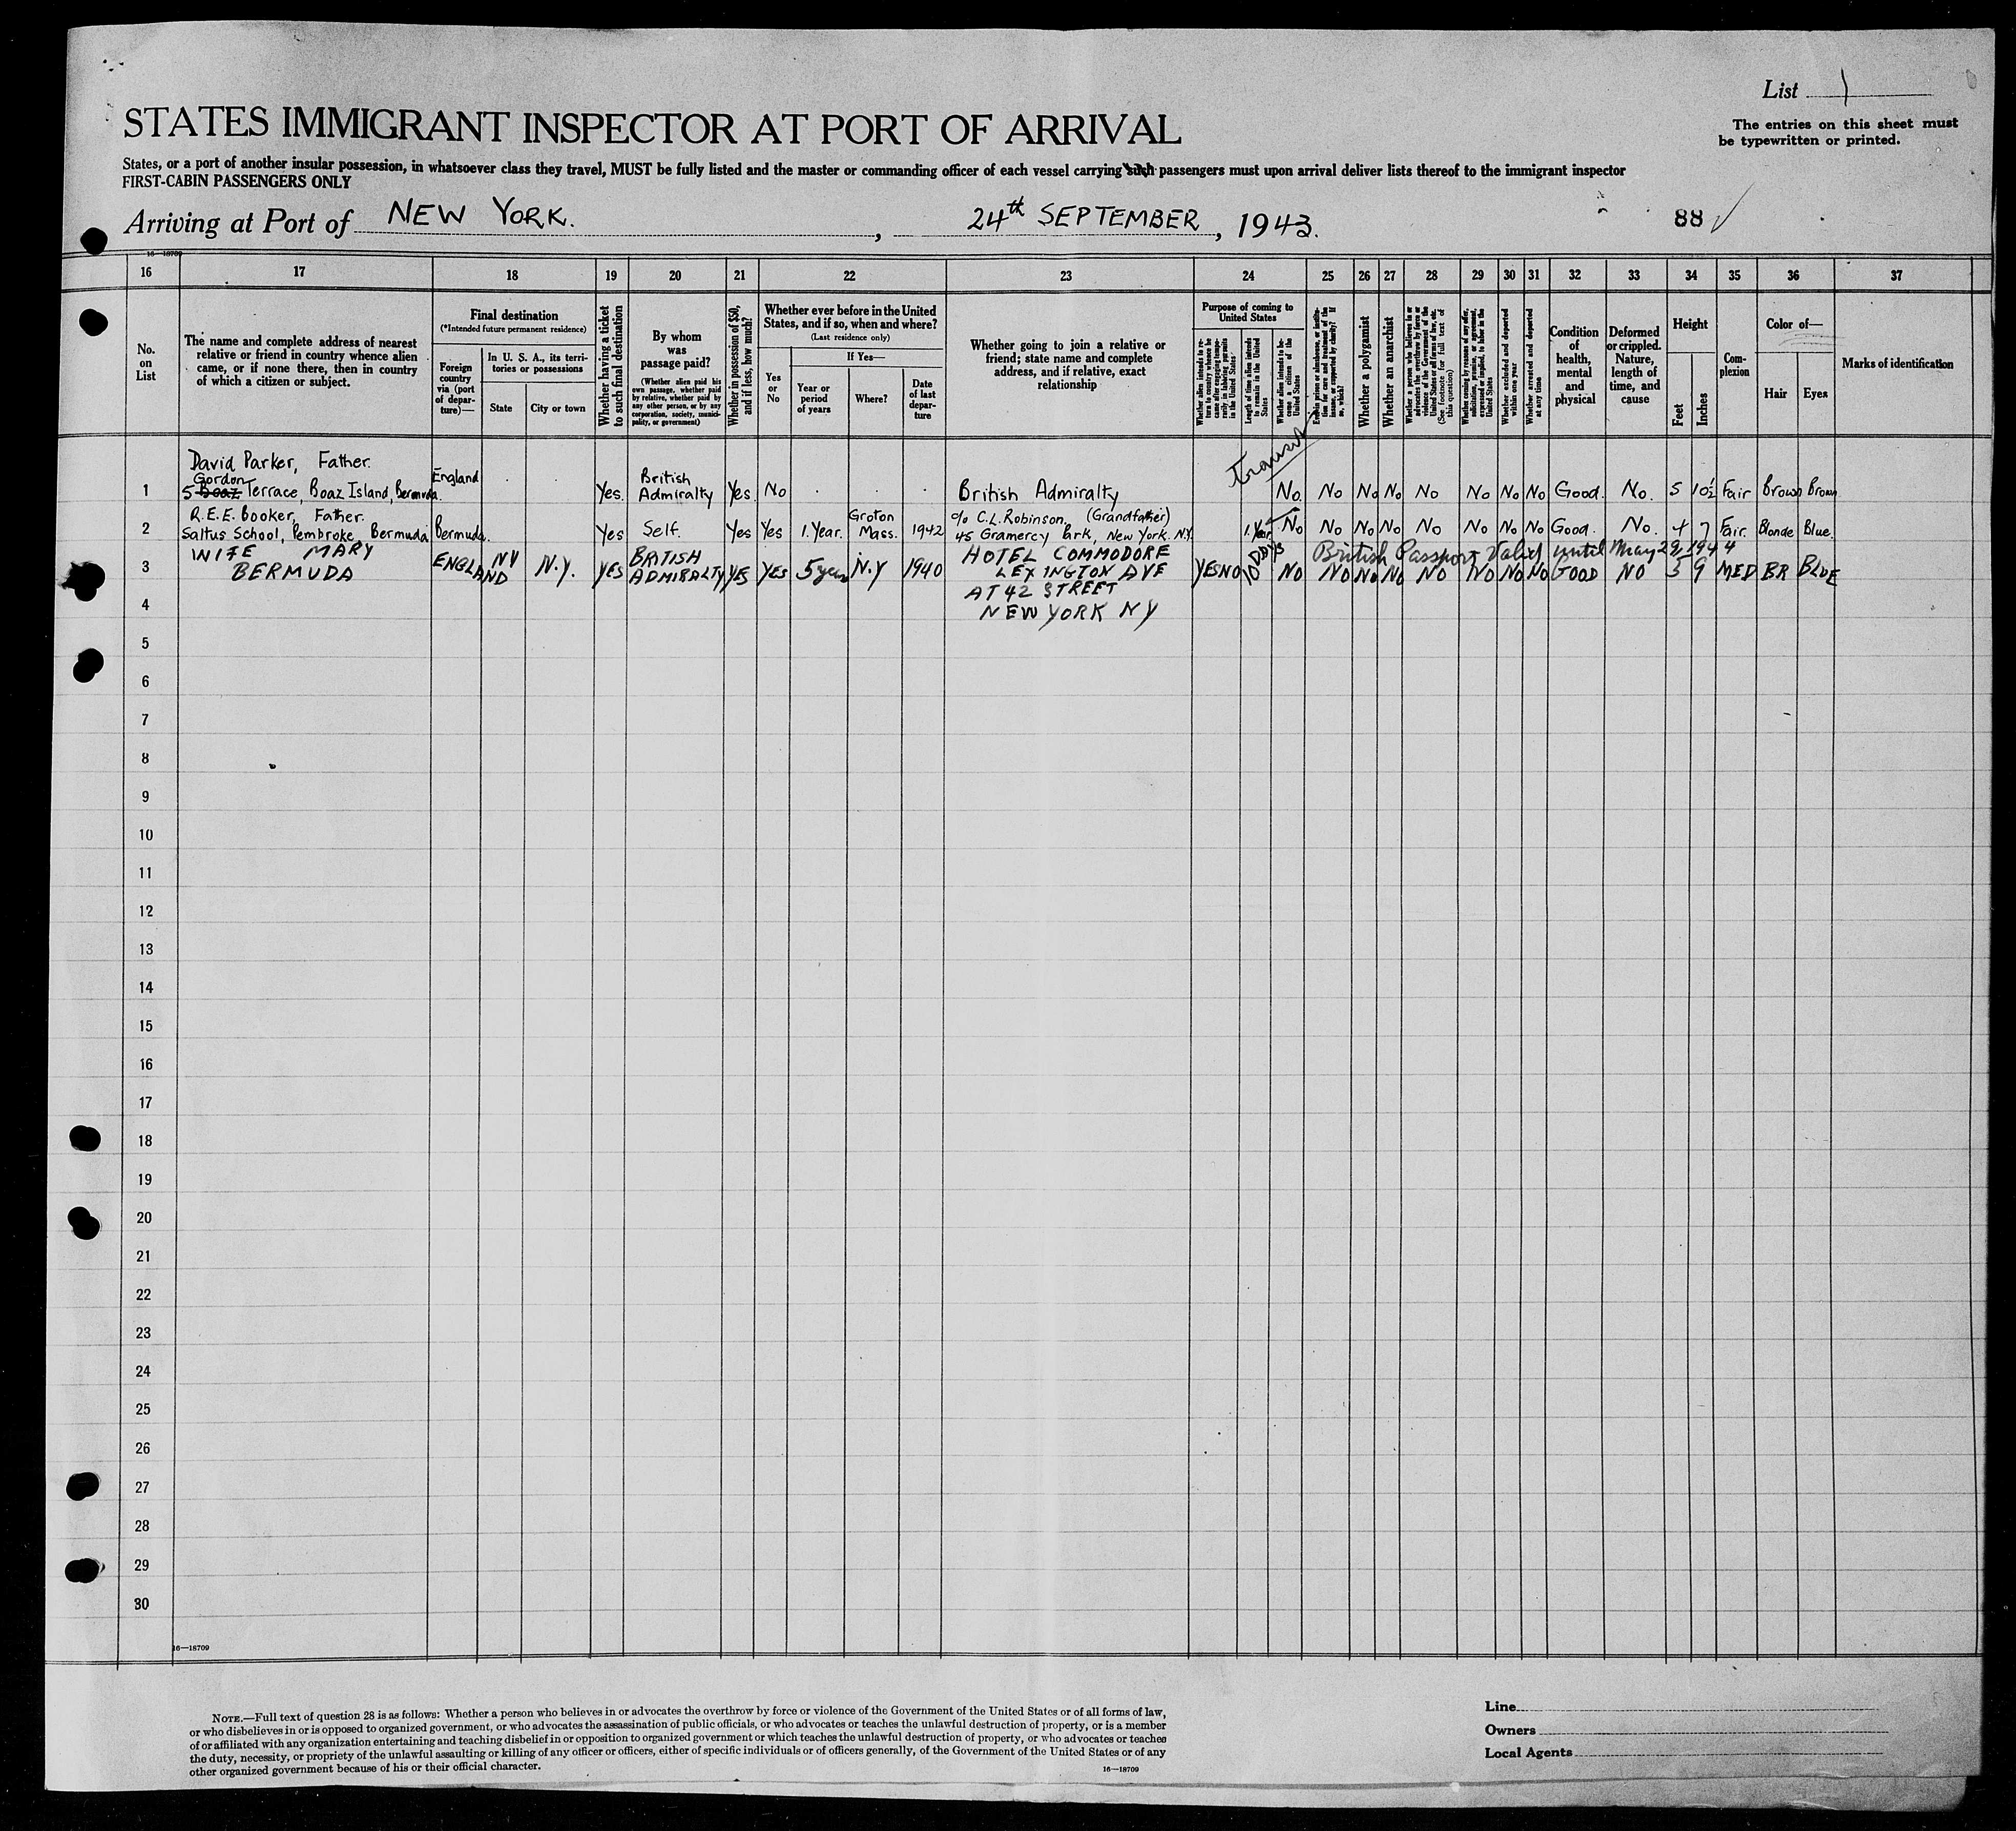 List 1
STATES IMMIGRANT INSPECTOR AT PORT OF ARRIVAL
The entries on this sheet must
be typewritten or printed.
States, or a port of another insular possession, in whatsoever class they travel, MUST be fully listed and the master or commanding officer of each vessel carrying such passengers must upon arrival deliver lists thereof to the immigrant inspector
FIRST-CABIN PASSENGERS ONLY
Arriving at Port of NEW YORK. , 24th SEPTEMBER, 1943.
88
16—18709
16 17 18 19 20 21 22 23 24 25 26 27 28 29 30 31 32 33 34 35 36 37
No.
on
List
The name and complete address of nearest
relative or friend in country whence alien
came, or if none there, then in country
of which a citizen or subject.
Final destination
(*Intended future permanent residence)
Foreign
country
via (port
of depar-
ture)—
In U. S. A., its terri-
tories or possessions
State
City or town
Whether having a ticket
to such final destination
By whom
was
passage paid?
(Whether alien paid his
own passage, whether paid
by relative, whether paid by
any other person, or by any
corporation, society, munici-
pality, or government)
Whether in possession of $50,
and if less, how much?
Whether ever before in the United
States, and if so, when and where?
(Last residence only)
Yes
or
No
If Yes—
Year or
period
of years
Where?
Date
of last
depar-
ture
Whether going to join a relative or
friend; state name and complete
address, and if relative, exact
relationship
Purpose of coming to
United States
Whether alien intends to re-
turn to country whence he
came after engaging tempo-
rarily in laboring pursuits
in the United States
Length of time alien intends
to remain in the United
States
Whether alien intends to be-
come a citizen of the
United States
Ever in prison or almshouse, or institu-
tion for care and treatment of the
insane, or supported by charity? If
so, which?
Whether a polygamist
Whether an anarchist
Whether a person who believes in or
advocates the overthrow by force or
violence of the Government of the
United States or all forms of law, etc.
(See footnote for full text of
this question)
Whether coming by reasons of any offer,
solicitation, promise, or agreement,
expressed or implied, to labor in the
United States
Whether excluded and deported
within one year
Whether arrested and deported
at any time
Condition
of
health,
mental
and
physical
Deformed
or crippled.
Nature,
length of
time, and
cause
Height
Feet
Inches
Com-
plexion
Color of—
Hair
Eyes
Marks of identification
David Parker, Father.
Gordon
1 5 Boaz Terrace, Boaz Island, Bermuda. England Yes. British Admiralty Yes. No British Admiralty Transit No. No No No No No No No Good. No. 5 10½ Fair Brown Brown
R.E.E. Booker, Father.
2 Saltus School, Pembroke, Bermuda Bermuda. Yes Self. Yes Yes 1. Year. Groton Mass. 1942 c/o C.L. Robinson, (Grandfather) 45 Gramercy Park, New York. N.Y. 1. Year No No No No No No No No Good. No. 4 7 Fair. Blonde Blue.
British Passport Valid until May 29, 1944
WIFE MARY
3 BERMUDA ENGLAND NY N.Y. YES BRITISH ADMIRALTY YES YES 5 years N.Y 1940 HOTEL COMMODORE
LEXINGTON AVE
AT 42 STREET
NEW YORK NY
YES NO 10 DAYS NO NO NO NO NO NO NO NO GOOD NO 5 9 MED BR BLUE
4
5
6
7
8
9
10
11
12
13
14
15
16
17
18
19
20
21
22
23
24
25
26
27
28
29
30
16—18709
NOTE.—Full text of question 28 is as follows: Whether a person who believes in or advocates the overthrow by force or violence of the Government of the United States or of all forms of law,
or who disbelieves in or is opposed to organized government, or who advocates the assassination of public officials, or who advocates or teaches the unlawful destruction of property, or is a member
of or affiliated with any organization entertaining and teaching disbelief in or opposition to organized government or which teaches the unlawful destruction of property, or who advocates or teaches
the duty, necessity, or propriety of the unlawful assaulting or killing of any officer or officers, either of specific individuals or of officers generally, of the Government of the United States or of any
other organized government because of his or their official character.
16—18709
Line
Owners
Local Agents